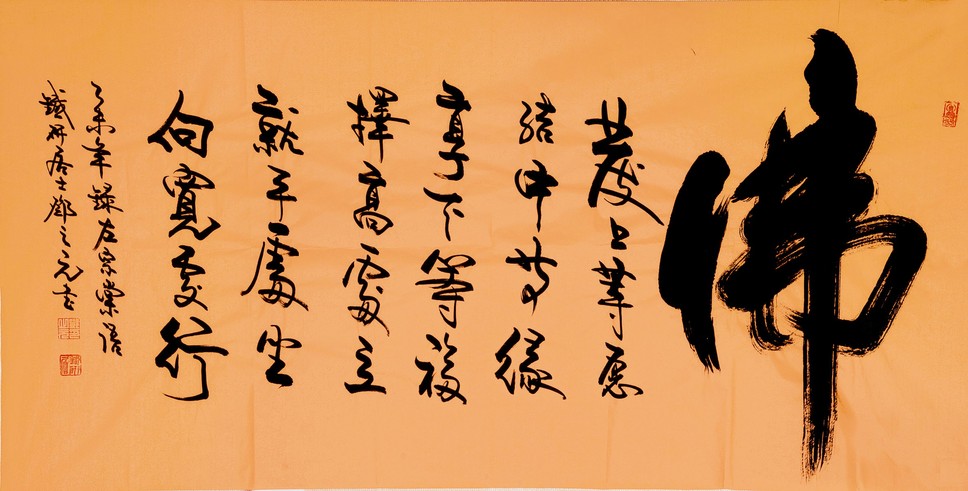 佛
發上等愿
結中等緣
享下等福
擇高處立
就平處坐
向寬處行
乙未年錄左宗棠語
鐵研居士鄧之元書